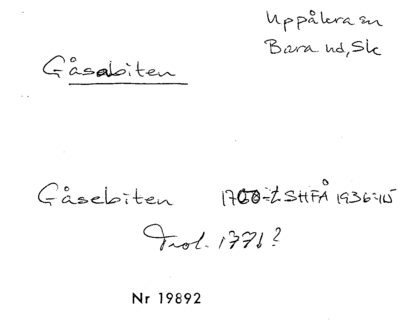 Uppåkra sn
Bara hd, Sk
Gåsabiten
Gåsebiten 1700-t SHFÅ 1936:
Trol. 1776?
Nr 19892